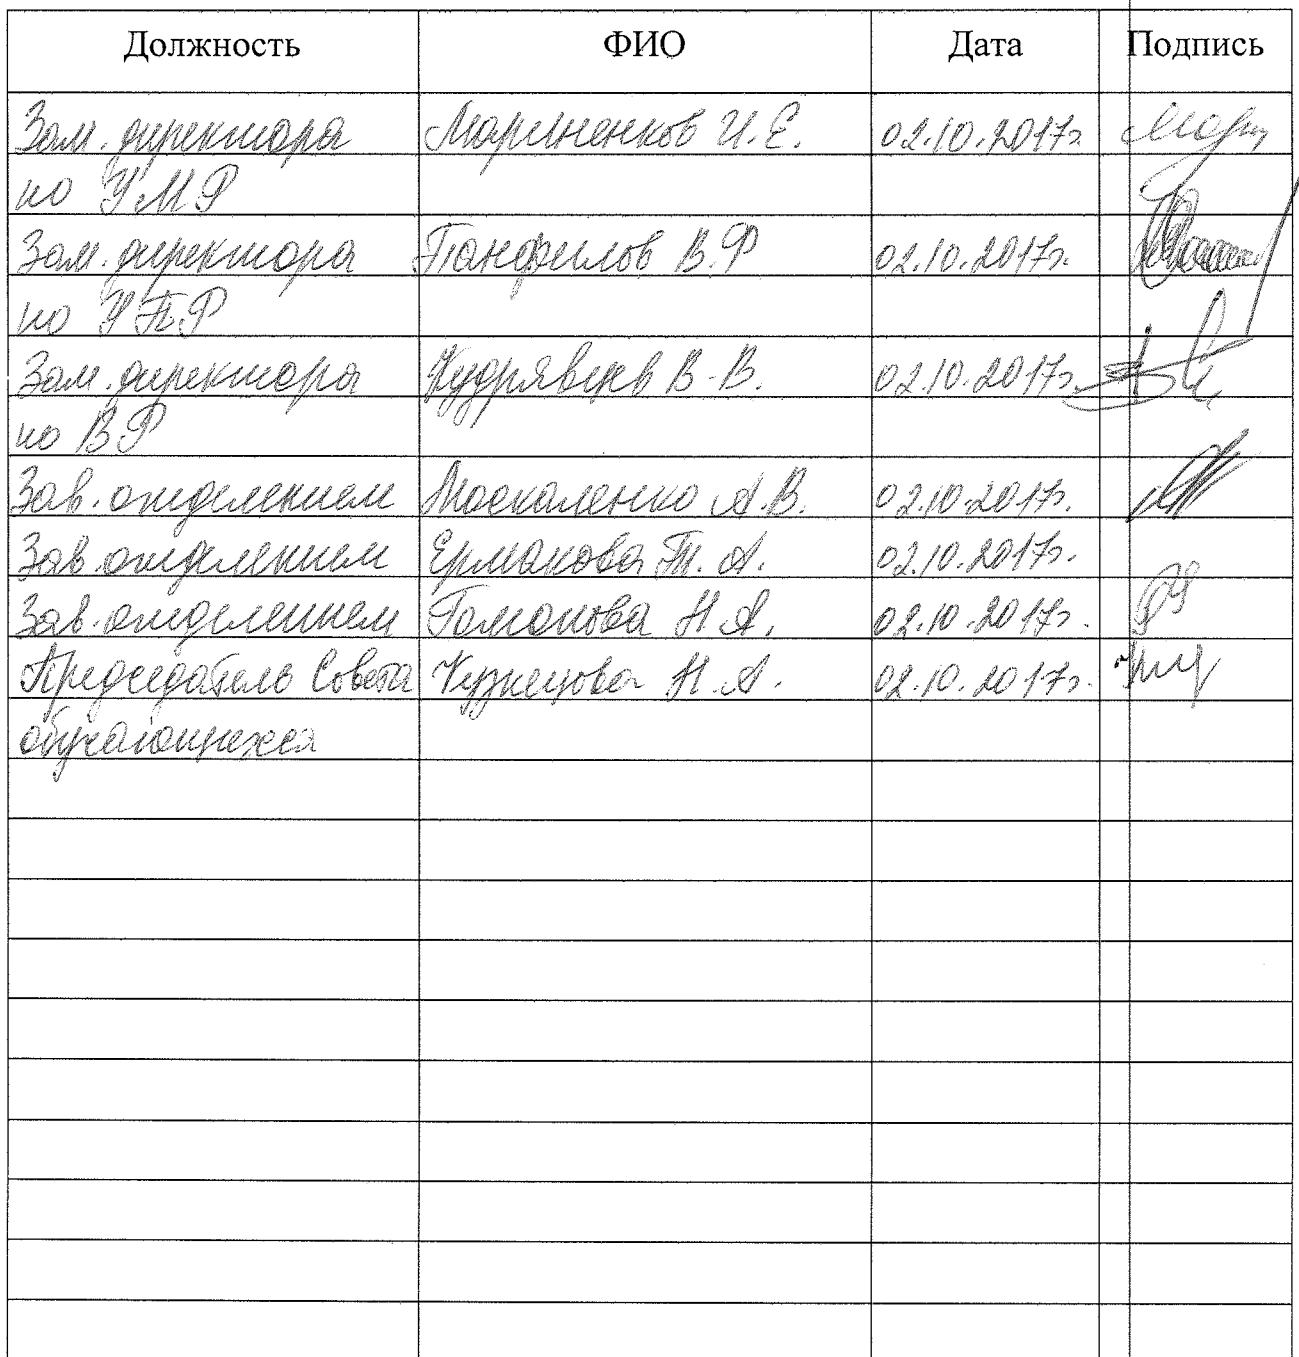 Должность ФИО Дата Подпись
Зам. директора Мартиненков И.Е. 02.10.2017г.
по УМР
Зам. директора Панфилов В.Ф 02.10.2017г.
по УПР
Зам. директора Кудрявцев В.В. 02.10.2017г.
по ВР
Зав. отделением Москаленко А.В. 02.10.2017г.
Зав. отделением Ермакова Т.А. 02.10.2017г.
Зав. отделением Гомонова Н.А. 02.10.2017г.
Председатель Совета Кузнецова Н.А. 02.10.2017г.
обучающихся